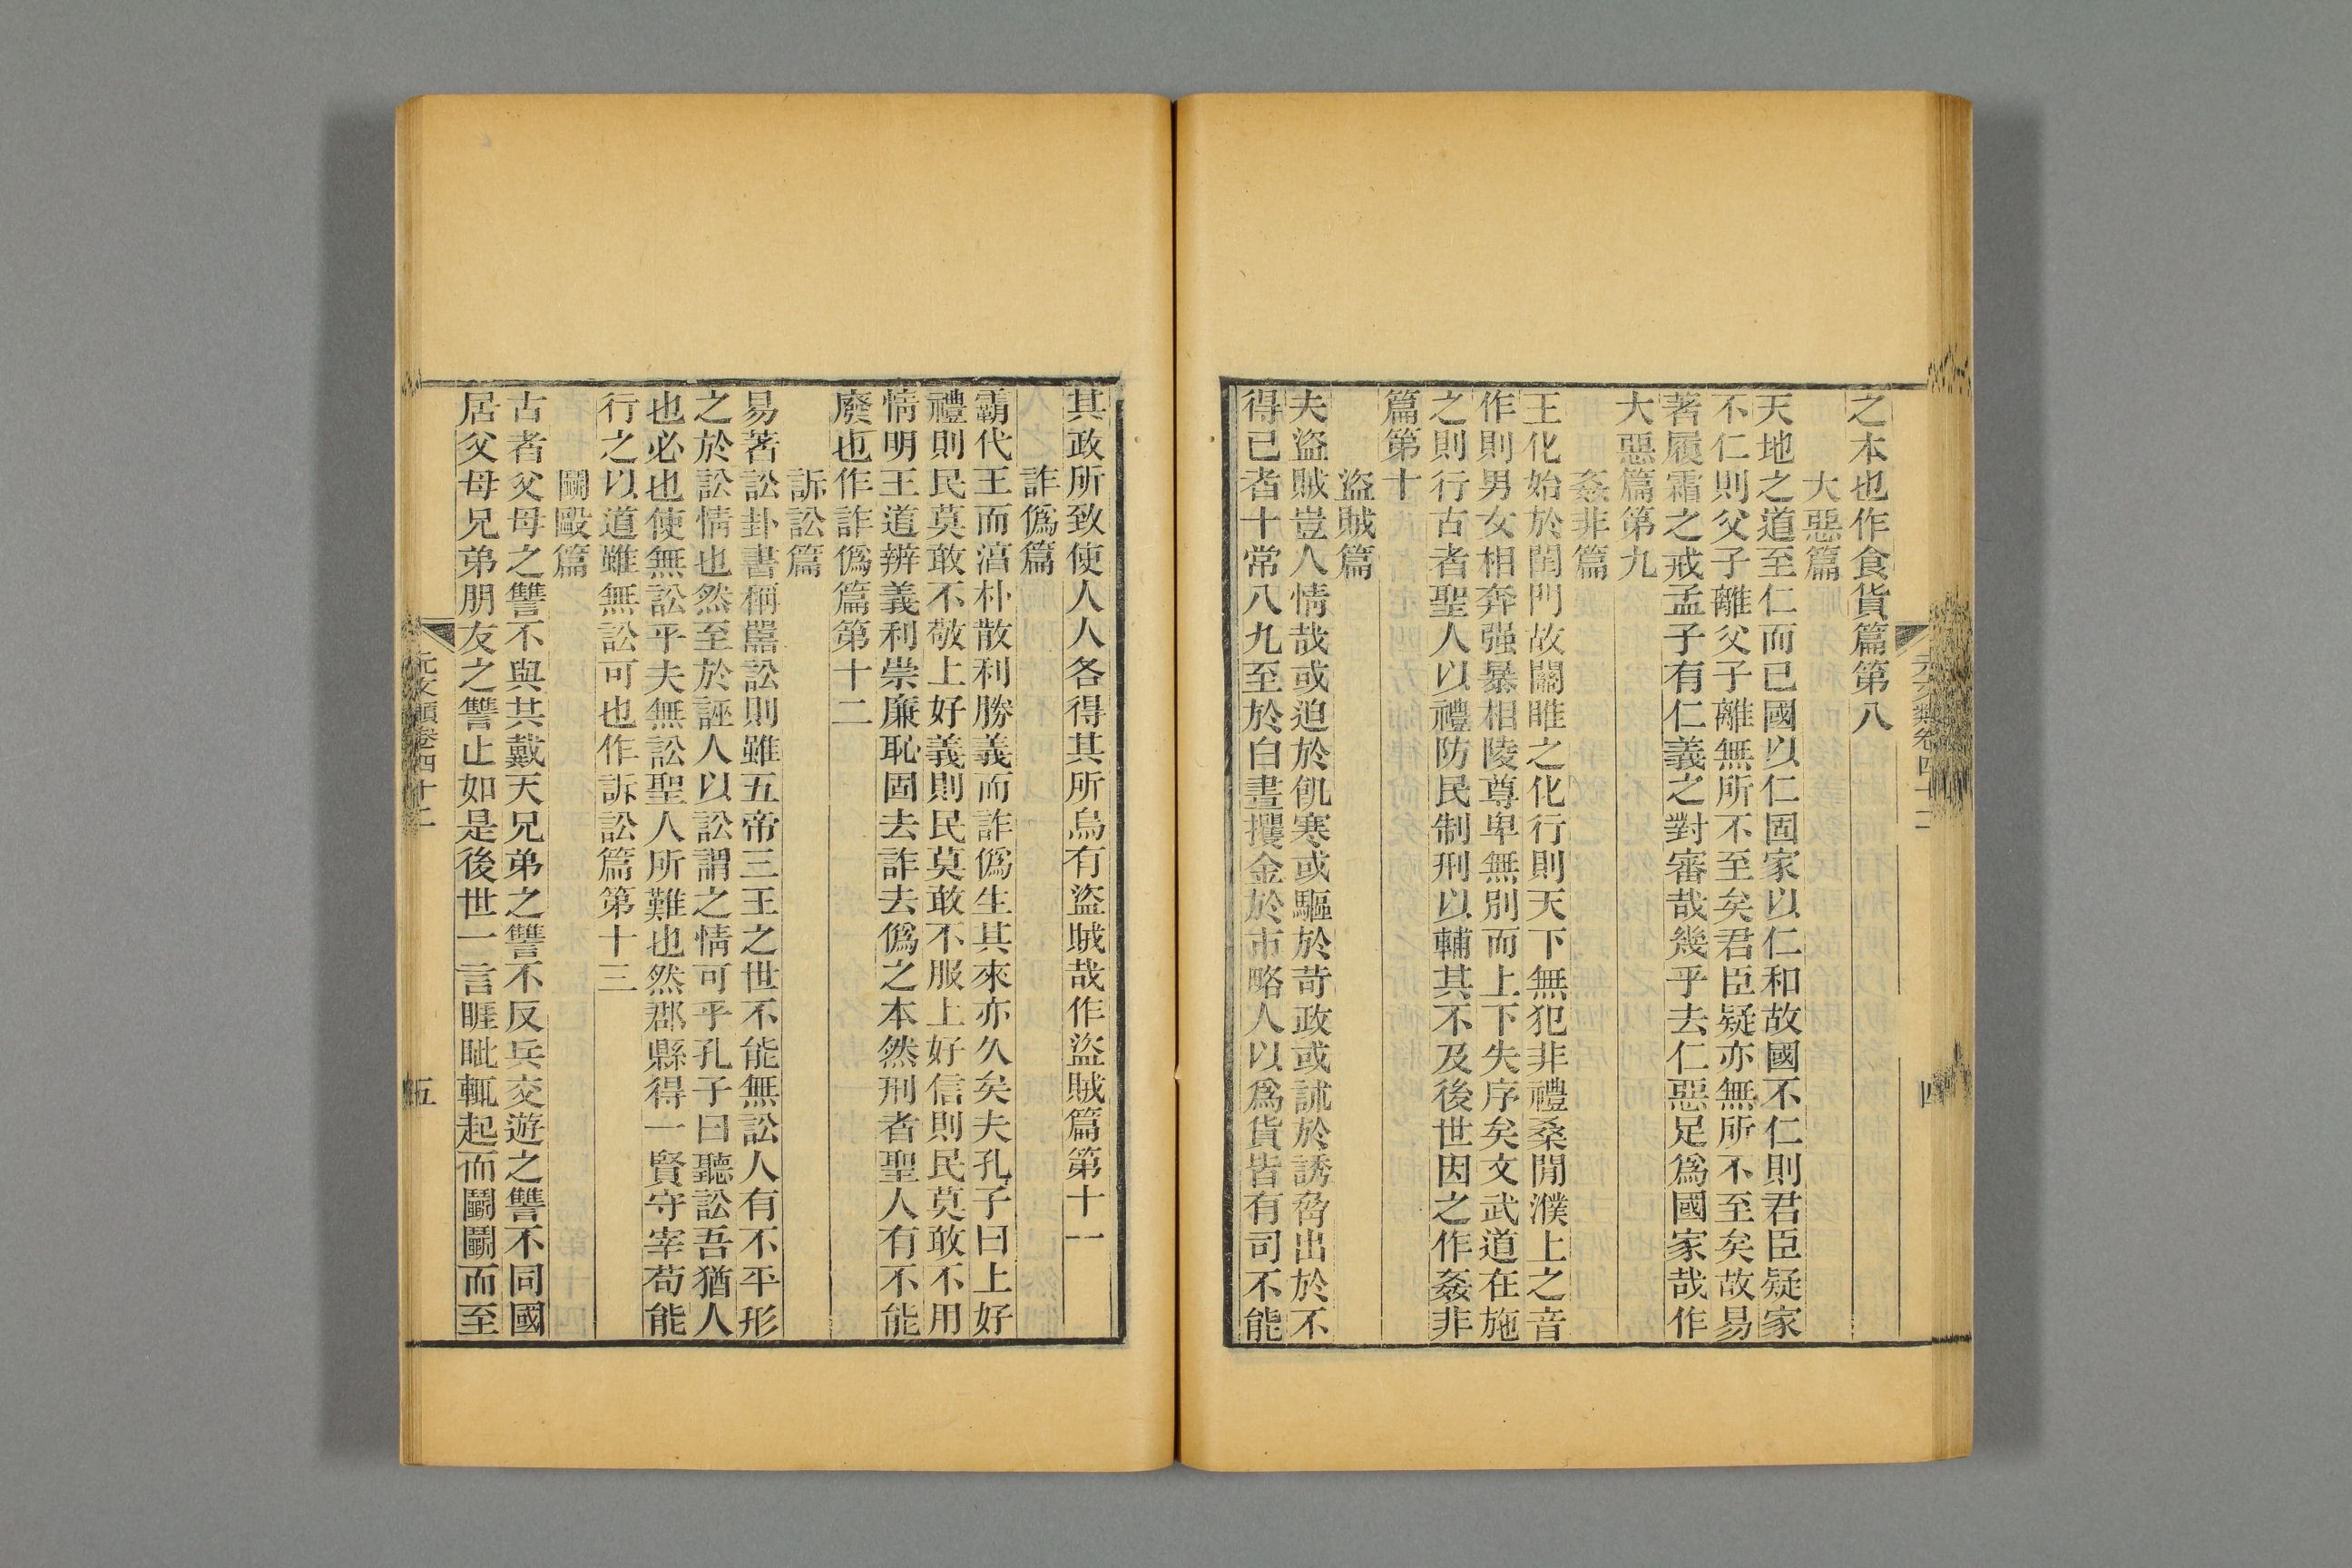 之本也作食貨篇第八
大惡篇
天地之道至仁而已國以仁固家以仁和故國不仁則君臣疑家
不仁則父子離父子離無所不至矣君臣疑亦無所不至矣故易
著履霜之戒孟子有仁義之對審哉幾乎去仁惡足爲國家哉作
大惡篇第九
姦非篇
王化始於閨門故關雎之化行則天下無犯非禮桑閒濮上之音
作則男女相奔强暴相陵尊卑無別而上下失序矣文武道在施
之則行古者聖人以禮防民制刑以輔其不及後世因之作姦非
篇第十
盜賊篇
夫盜賊豈人情哉或迫於飢寒或驅於苛政或訹於誘脅出於不
得已者十常八九至於白晝攫金於市略人以爲貨皆有司不能
元文類卷四十二
四
其政所致使人人各得其所烏有盜賊哉作盜賊篇第十一
詐僞篇
霸代王而滈朴散利勝義而詐僞生其來亦久矣夫孔子曰上好
禮則民莫敢不敬上好義則民莫敢不服上好信則民莫敢不用
情明王道辨義利崇廉恥固去詐去僞之本然刑者聖人有不能
廢也作詐僞篇第十二
訴訟篇
易著訟卦書稱嚚訟則雖五帝三王之世不能無訟人有不平形
之於訟情也然至於誣人以訟謂之情可乎孔子曰聽訟吾猶人
也必也使無訟乎夫無訟聖人所難也然郡縣得一賢守宰苟能
行之以道雖無訟可也作訴訟篇第十三
鬭毆篇
古者父母之讐不與共戴天兄弟之讐不反兵交遊之讐不同國
居父母兄弟朋友之讐止如是後世一言睚眦輒起而鬭鬭而至
元文類卷四十二
五